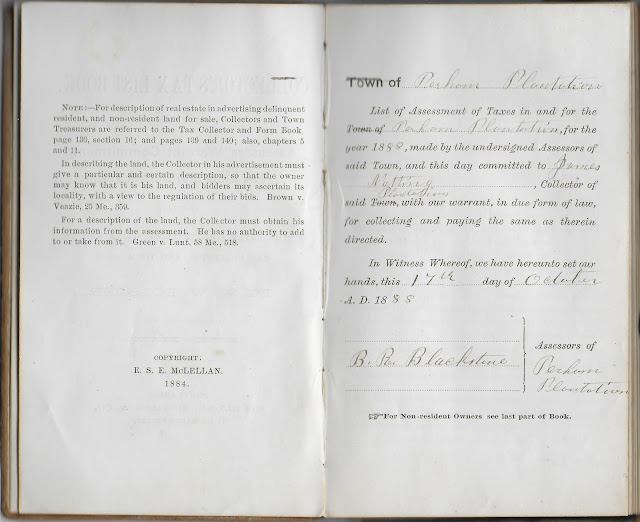 NOTE:—For description of real estate in advertising delinquent
resident, and non-resident land for sale, Collectors and Town
Treasurers are referred to the Tax Collector and Form Book,
page 139, section 16; and pages 139 and 140; also, chapters 5
and 11.
In describing the land, the Collector in his advertisement must
give a particular and certain description, so that the owner
may know that it is his land, and bidders may ascertain its
locality, with a view to the regulation of their bids. Brown v.
Veazie, 25 Me., 359.
For a description of the land, the Collector must obtain his
information from the assessment. He has no authority to add
to or take from it. Green v. Lunt, 58 Me., 518.
COPYRIGHT.
E. S. E. McLELLAN.
1884.
Town of Perham Plantation
List of Assessment of Taxes in and for the
Town of Perham Plantation, for the
year 1888, made by the undersigned Assessors of
said Town, and this day committed to James
Nutting, Collector of
Plantation
said Town, with our warrant, in due form of law,
for collecting and paying the same as therein
directed.
In Witness Whereof, we have hereunto set our
hands, this 17th day of October
A. D. 1888
B. R. Blackstine
Assessors of
Perham
Plantation
☞For Non-resident Owners see last part of Book.